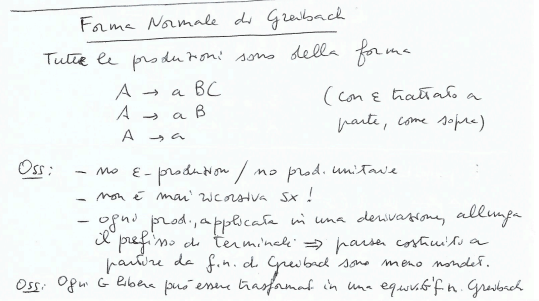 Forma Normale di Greibach
Tutte le produzioni sono della forma
A → a BC (con ε trattato a
A → a B parte, come sopra)
A → a
Oss: - no ε-produzioni / no prod. unitarie
- non è mai ricorsiva sx!
- ogni prod., applicata in una derivazione, allunga
il prefisso di terminali ⇒ parser costruito a
partire da f.n. di Greibach sono meno nondet.
Oss: Ogni G libera può essere trasformat in una equiv. f.n. Greibach